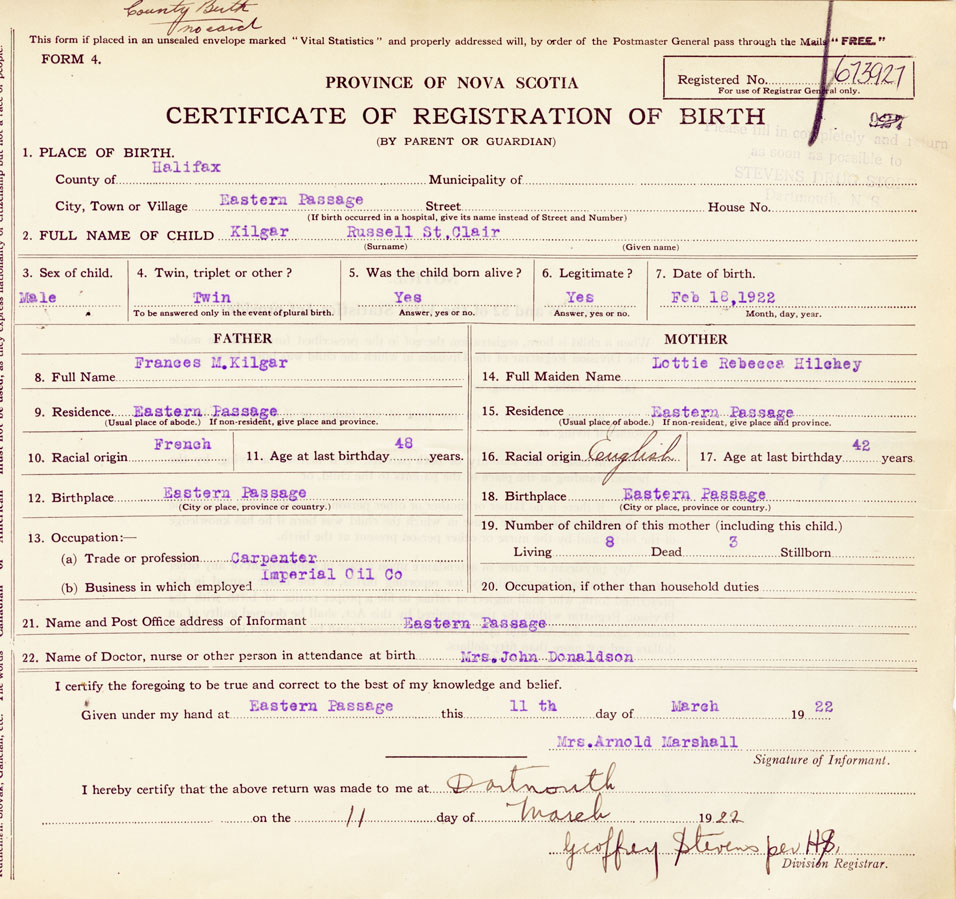 County Birth
no card
This form if placed in an unsealed envelope marked "Vital Statistics" and properly addressed will, by order of the Postmaster General pass through the Mails "FREE."
FORM 4.
PROVINCE OF NOVA SCOTIA
Registered No. 673927
For use of Registrar General only.
CERTIFICATE OF REGISTRATION OF BIRTH
927
(BY PARENT OR GUARDIAN)
Please fill in completely and return
as soon as possible to
STEVENS DRUG STORE
Dartmouth, N.S
1. PLACE OF BIRTH.
County of Halifax Municipality of
City, Town or Village Eastern Passage Street House No.
(If birth occurred in a hospital, give its name instead of Street and Number)
2. FULL NAME OF CHILD Kilgar Russell St,Clair
(Surname) (Given name)
3. Sex of child. 4. Twin, triplet or other? 5. Was the child born alive? 6. Legitimate? 7. Date of birth.
Male Twin Yes Yes Feb 18,1922
To be answered only in the event of plural birth. Answer, yes or no. Answer, yes or no. Month, day, year.
FATHER MOTHER
8. Full Name Frances M.Kilgar 14. Full Maiden Name Lottie Rebecca Hilchey
9. Residence. Eastern Passage 15. Residence Eastern Passage
(Usual place of abode.) If non-resident, give place and province. (Usual place of abode.) If non-resident, give place and province.
10. Racial origin French 11. Age at last birthday 48 years. 16. Racial origin English 17. Age at last birthday 42 years
12. Birthplace Eastern Passage 18. Birthplace Eastern Passage
(City or place, province or country.) (City or place, province or country.)
13. Occupation:— 19. Number of children of this mother (including this child.)
(a) Trade or profession Carpenter Living 8 Dead 3 Stillborn
(b) Business in which employed Imperial Oil Co 20. Occupation, if other than household duties
21. Name and Post Office address of Informant Eastern Passage
22. Name of Doctor, nurse or other person in attendance at birth Mrs.John Donaldson
I certify the foregoing to be true and correct to the best of my knowledge and belief.
Given under my hand at Eastern Passage this 11 th day of March 19 22
Mrs.Arnold Marshall
Signature of Informant.
I hereby certify that the above return was made to me at Dartmouth
on the 11 day of March 1922
Geoffrey Stevens per HS.
Division Registrar.